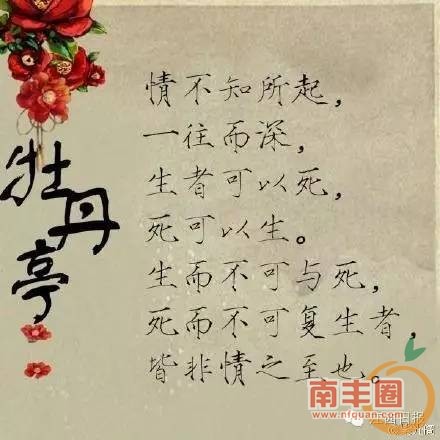 牡丹亭
情不知所起，
一往而深，
生者可以死，
死可以生。
生而不可与死，
死而不可复生者，
皆非情之至也。
南丰圈
www.nfquan.com